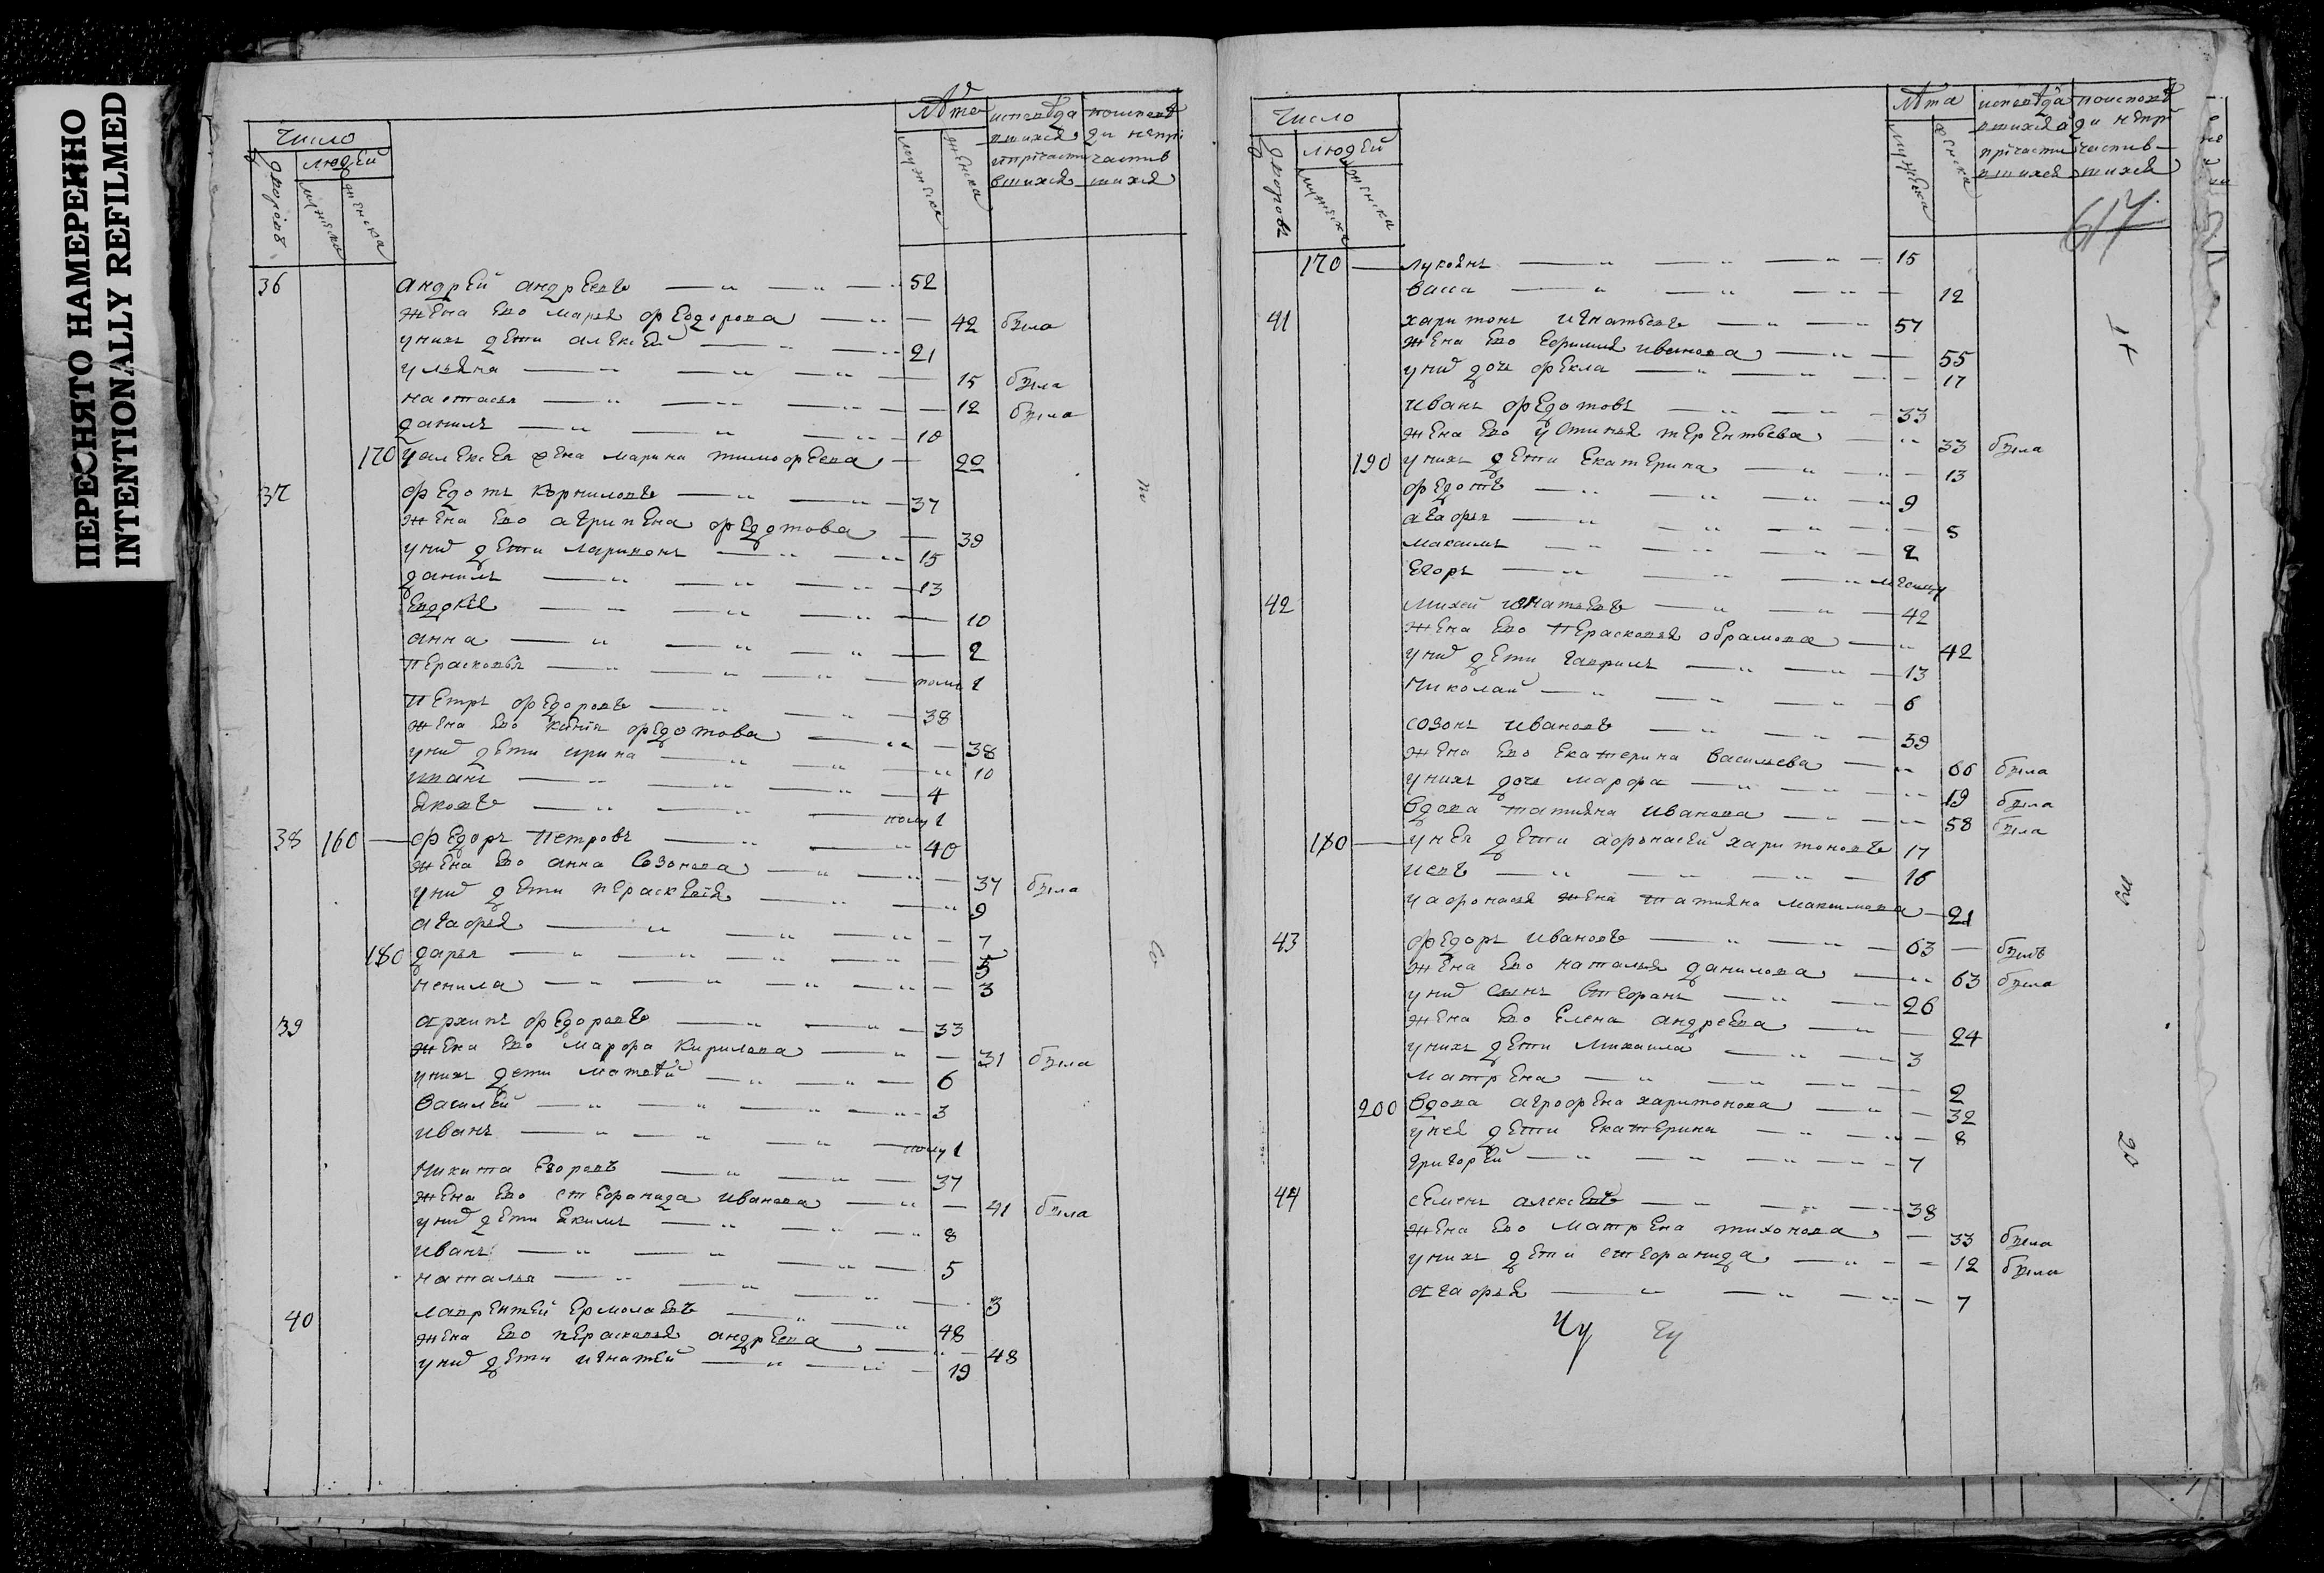 ПЕРЕСНЯТО НАМЕРЕННО
INTENTIONALLY REFILMED
Число
людей
дворовъ
мужеска
женска
лѣта
мужеска
женска
исповѣда
вшихся
и прiчасти
вшихся
по исповѣ
ди непрi
частив
шихся
36 андрей андреевъ 52
жена ево марья федорова 42 была
у них дети алексей 21
ульяна 15 была
настасья 12 была
данилъ 10
170 у алексея жена марина тимофеева 22
37 федотъ корниловъ 37
жена ево агрипена федотова 39
у них дети ларионъ 15
данилъ 13
евдокея 10
анна 2
перасковья полу 1
петръ федоровъ 38
жена ево федотова 38
у них дети ирина 10
иванъ 4
яковъ полу 1
38 160 федоръ петровъ 40
жена ево анна созонова 37 была
у них дети пераскевiя 9
агафья 7
180 дарья 5
ненила 3
39 архипъ федоровъ 33
жена ево марфа кирилова 31 была
у нихъ дети матвей 6
василей 3
иванъ полу 1
никита егоровъ 37
жена ево стефанида иванова 41 была
у них дети екимъ 8
иванъ 5
наталья 3
40 лаврентей ермолаевъ 48
жена ево перасковья андреева 48
у них дети игнатей 19
Число
людей
дворовъ
мужеска
женска
лѣта
мужеска
женска
исповѣда
вшихся и
прiчасти
вшихся
по исповѣ
ди непр
частив
шихся
617
170 лукоянъ 15
васса 12
41 харитонъ игнатьевъ 57
жена ево ефимия иванова 55
у них дочь фекла 17
иванъ федотовъ 33
жена ево устинья терентьева 33 была
190 у нихъ дети екатерина 13
федотъ 9
агафья 5
максимъ 2
егоръ
42 михей игнатьевъ 42
жена ево перасковья абрамова 42
у них дети гаврилъ 13
николай 6
созонъ ивановъ 59
жена ево екатерина васильева 66 была
у нихъ дочь марфа 19 была
вдова татияна иванова 58 была
180 у нея дети афонасей харитоновъ 17
иевъ 16
у афонасья жена татияна максимова 21
43 федоръ ивановъ 63 былъ
жена ево наталья данилова 63 была
у них сынъ стефанъ 26
жена ево елена андреева 24
у нихъ дети михаила 3
матрена 2
200 вдова агрофена харитонова 32
у нея дети екатерина 8
григорей 7
44 семенъ алексеевъ 38
жена ево матрена тихонова 33 была
у нихъ дети стефанида 12 была
агафья 7